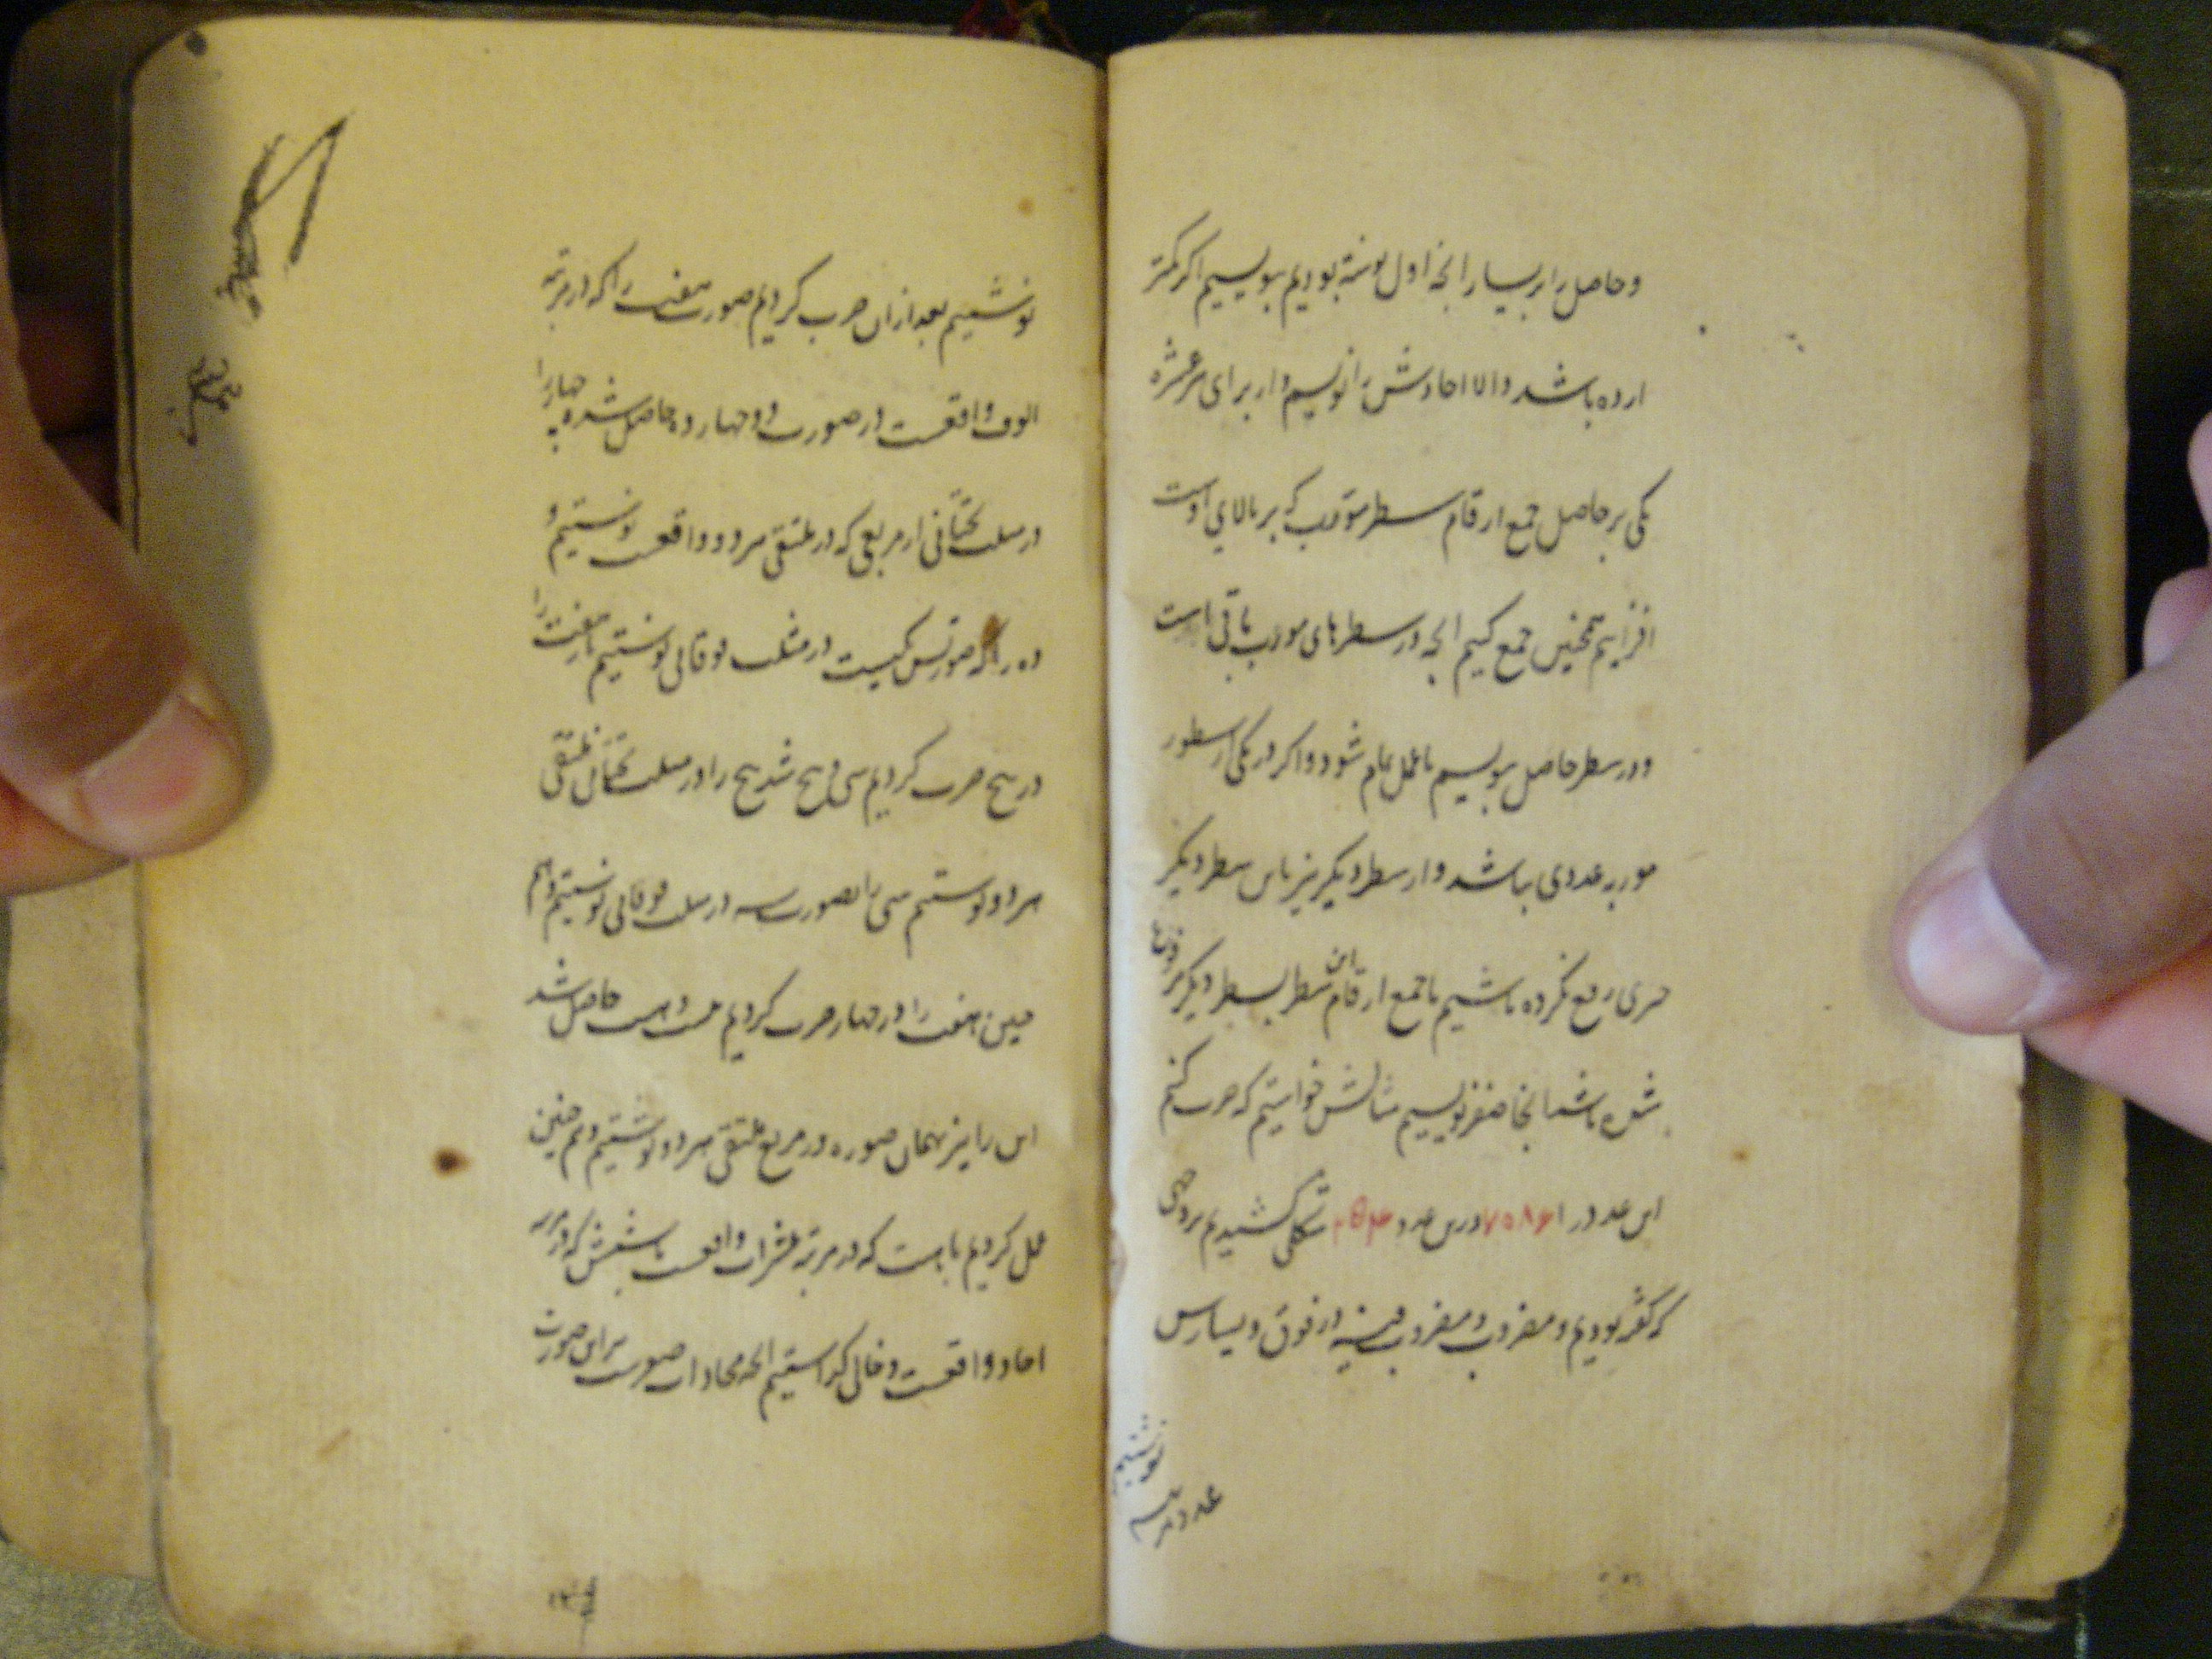 و حاصل را بر یسار انچه اول نوشته بودیم بنویسیم اگر کمتر
از ده باشد و الا احادش را نویسیم و از برای هر عشره
یکی بر حاصل جمع ارقام سطر مورب که بر بالای اوست
افزاییم همچنین جمع کنیم انچه در سطرهای مورب باقی است
و در سطر حاصل بنویسیم تا عمل تمام شود و اگر در یکی از سطور
مورب عددی نباشد و از سطر دیگر نیز باین سطر دیگر
چیزی رفع نکرده باشیم یا جمع ارقام این سطر بسطر دیگر
شده باشد انجا صفر نویسیم مثالش خواستیم که ضرب کنیم
این عدد را ۷۰۸۶ درین عدد شکلی کشیدیم بروجهی
که گفته بودیم و مضروب و مضروب فیه در فوق و یسارش
نوشتیم بعد ازان ضرب کردیم صورت هفت را که در مرتبه
الوف واقعست در صورت دو چهارده حاصل شد چهار را
در مثلث تحتانی از مربعی که در ملتقی هر دو واقعست نوشتیم و
ده را که صورتش یکیست در مثلث فوقانی نوشتیم باز هفت را
در پنج ضرب کردیم سی و پنج شد پنج را در مثلث تحتانی ملتقی
هر دو نوشتیم سی را بصورت سه در مثلث فوقانی نوشتیم و هم
چنین هفت را در چهار ضرب کردیم بیست و هشت حاصل شد
این را نیز بهمان صوره در مربع ملتقی هر دو نوشتیم و هم چنین
عمل کردیم با هشت که در مرتبه عشرات واقعست با شش که در مرتبه
احاد واقعست و خالی گذاشتیم انچه محاذات صورت